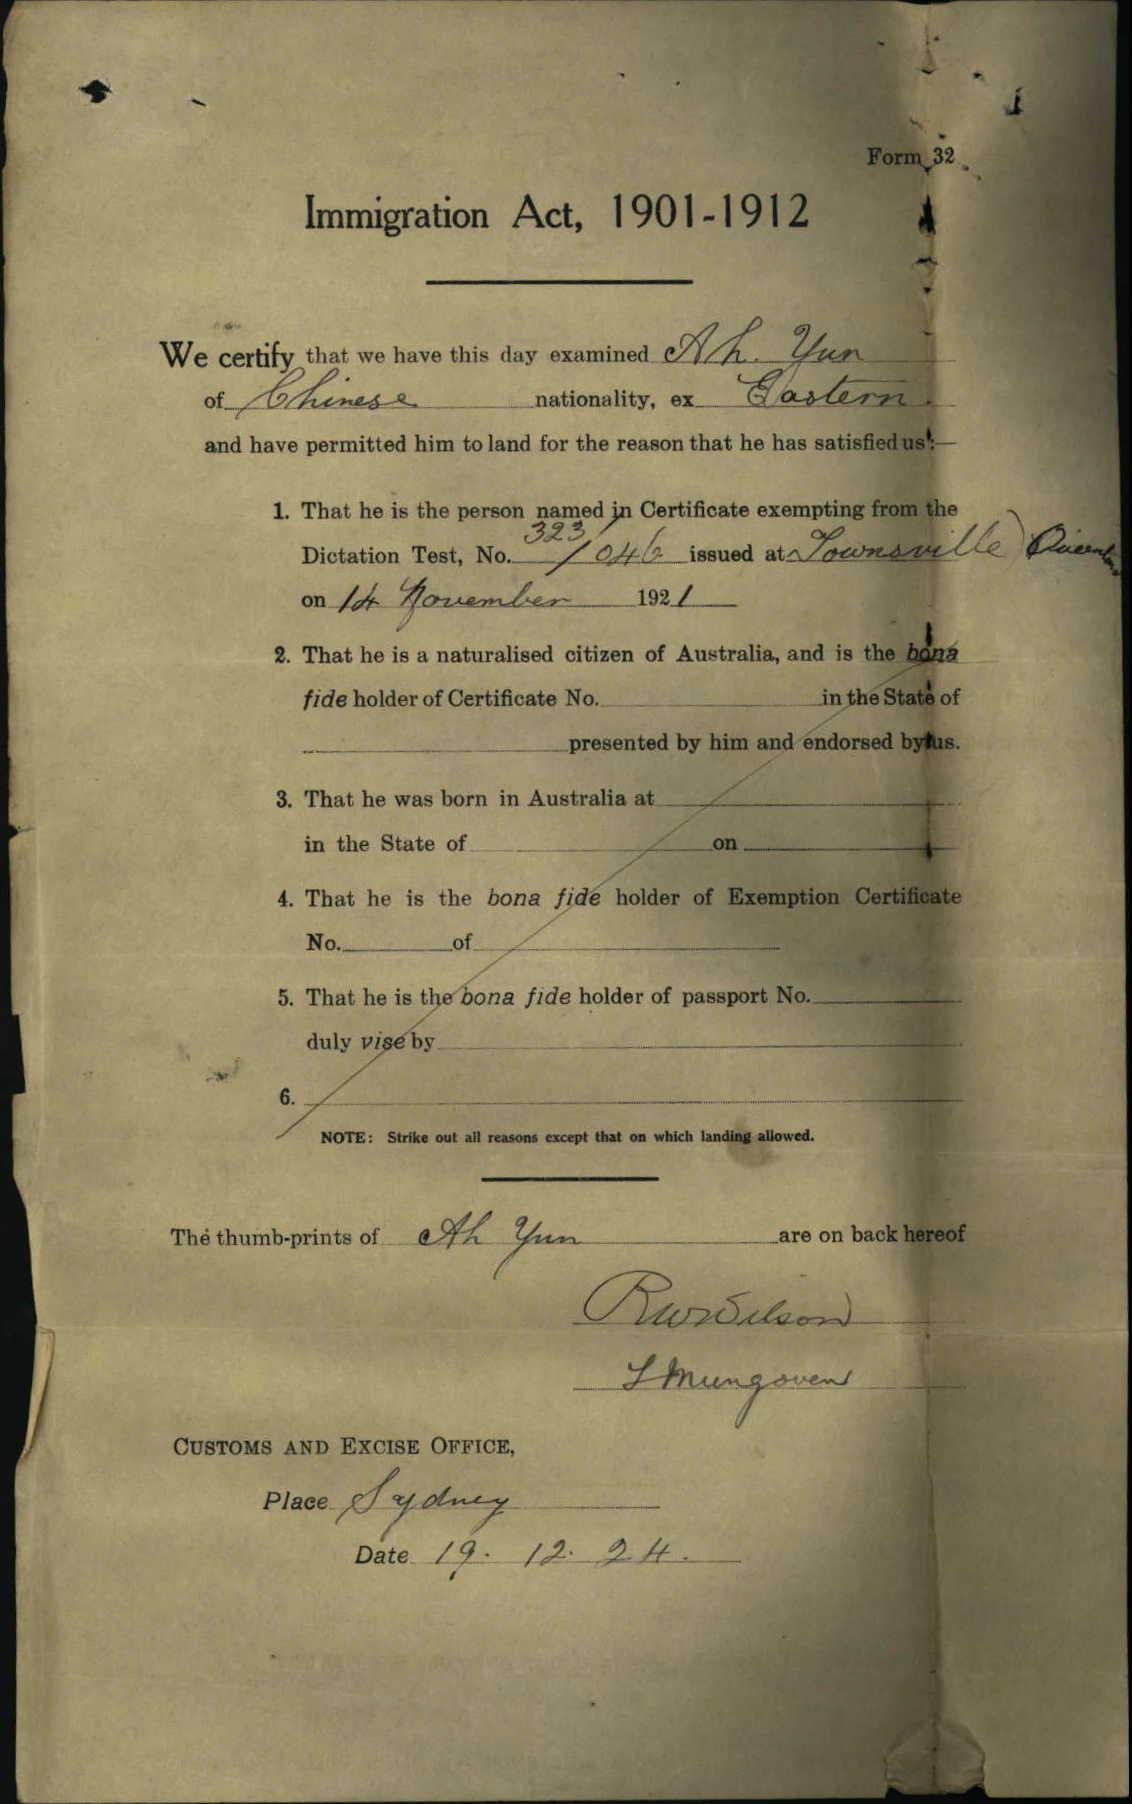 Form 32
Immigration Act, 1901-1912
We certify that we have this day examined Ah. Yun
of Chinese nationality, ex Eastern.
and have permitted him to land for the reason that he has satisfied us:—
1. That he is the person named in Certificate exempting from the
Dictation Test, No. 323/046 issued at Townsville
on 14 November 1921
2. That he is a naturalised citizen of Australia, and is the bona
fide holder of Certificate No. in the State of
presented by him and endorsed by us.
3. That he was born in Australia at
in the State of on
4. That he is the bona fide holder of Exemption Certificate
No. of
5. That he is the bona fide holder of passport No.
duly visé by
6.
NOTE: Strike out all reasons except that on which landing allowed.
The thumb-prints of Ah Yun are on back hereof
RW Wilson
Mungoven
CUSTOMS AND EXCISE OFFICE,
Place Sydney
Date 19. 12. 24.